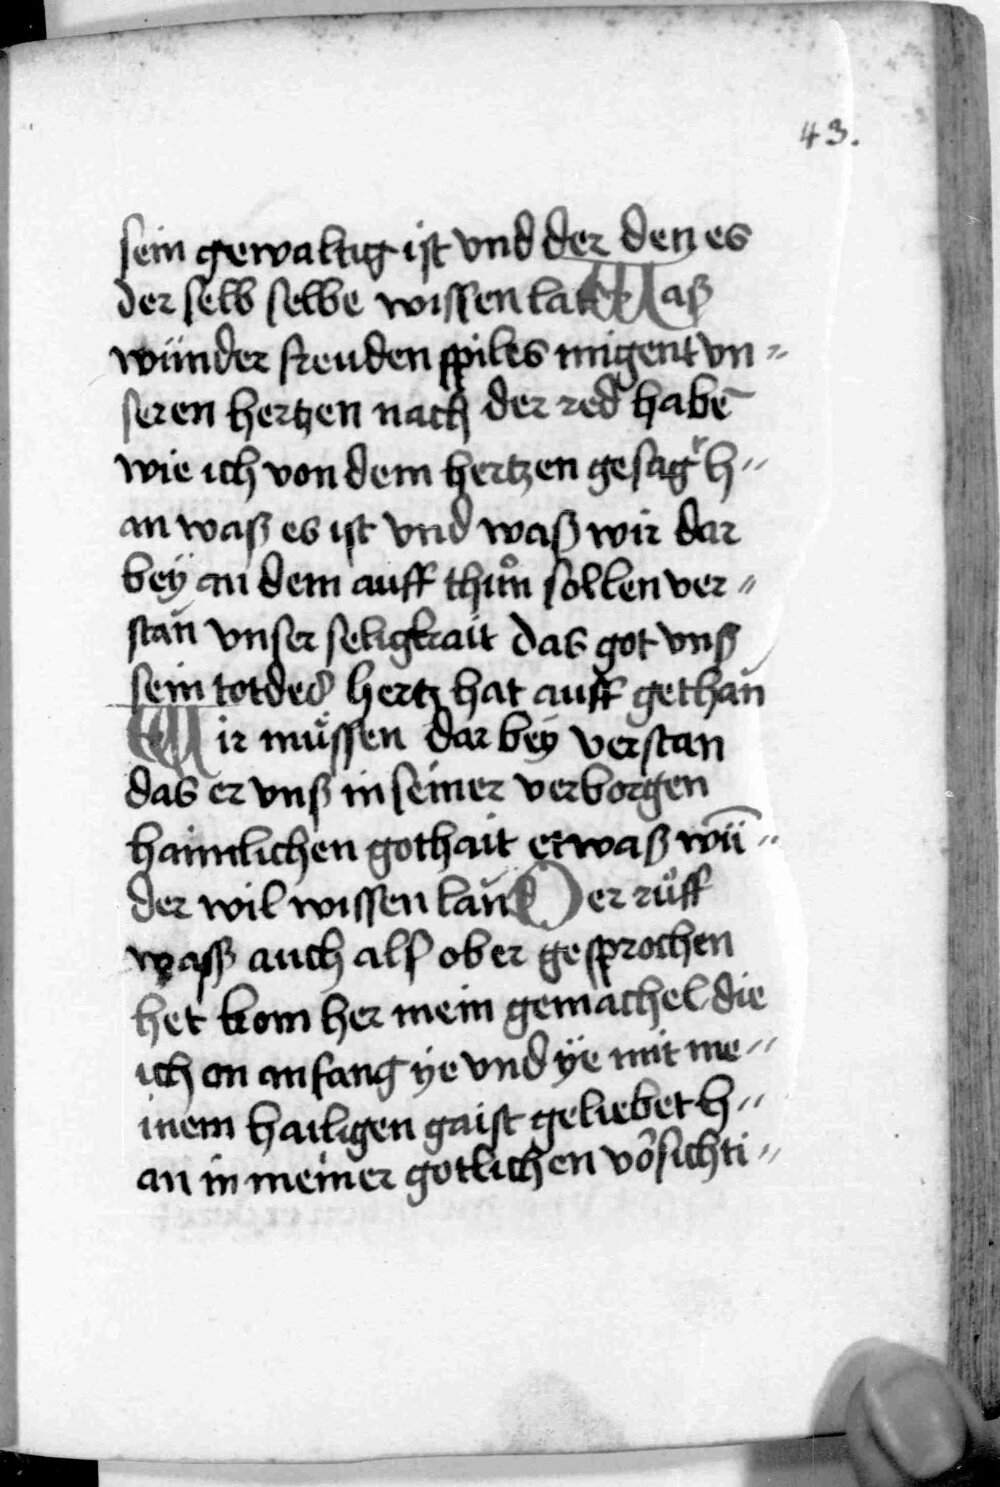 43.
sein gewaltig ist vnd der den es
der selb selbe wissen lat Waß
wünder freuden spiles mügent vn=
seren hertzen nach der red habē
wie ich von dem hertzen gesagt h=
an waß es ist vnd waß wir dar
beÿ an dem auff thuͦn sollen ver=
stan vnser seligkait das got vnß
sein totdes hertz hat auff gethan
Wir muͤssen dar beÿ verstan
das er vnß in seiner verborgen
haimlichen gothait etwaß wū=
der wil wissen lan Der ruͤff
waß auch alß ob er gesprochen
het kom her mein gemachel die
ich an anfang ÿe vnd ÿe mit me=
inem hailigen gaist geliebet h=
an in meiner gotlichen vorsichti=